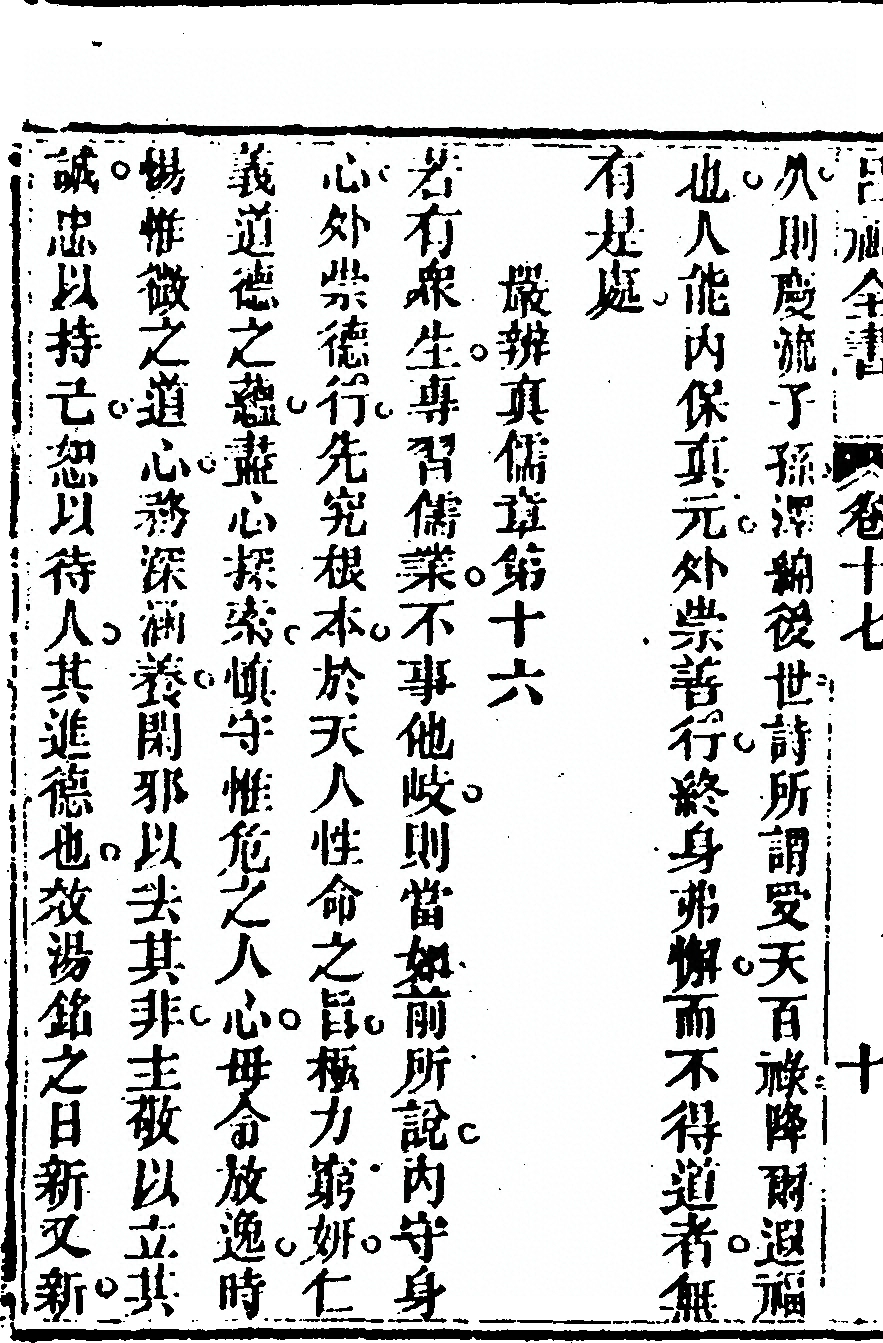 呂祖全書 卷十七 十
久則慶流子孫澤綿後世詩所謂受天百祿降爾遐福
也人能內保真元外崇善行終身弗懈而不得道者無
有是處
嚴辨真儒章第十六
若有眾生專習儒業不事他岐則當如前所說內守身
心外崇德行先究根本於天人性命之旨極力窮妍仁
義道德之蘊盡心探索慎守惟危之人心毋令放逸時
惕惟微之道心務深涵養閑邪以去其非主敬以立其
誠忠以持己恕以待人其進德也效湯銘之日新又新